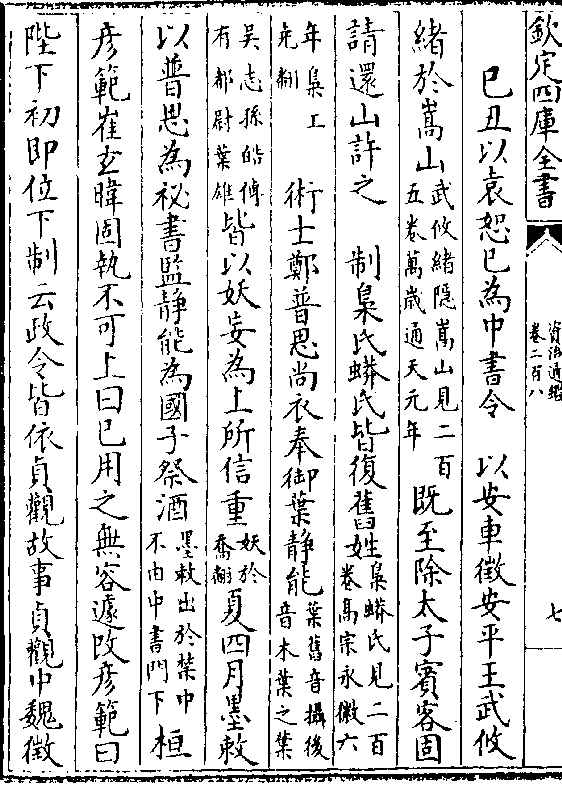 欽定四庫全書
資治通鑑
卷二百八
七
己丑以袁恕已為中書令　以安車徵安平王武攸
緒於嵩山武攸緒隱嵩山見二百五卷萬歲通天元年既至除太子賓客固
請還山許之　制梟氏蟒氏皆復舊姓梟蟒氏見二百卷高宗永徽六
年梟工堯翻　術士鄭普思尚衣奉御葉静能葉舊音攝後音木葉之葉
吳志孫皓傳有都尉葉雄皆以妖妄為上所信重妖於喬翻夏四月墨敕
以普思為祕書監静能為國子祭酒墨敕出於禁中不由中書門下桓
彦範崔玄暐固執不可上曰已用之無容遽改彦範曰
陛下初即位下制云政令皆依貞觀故事貞觀中魏徵